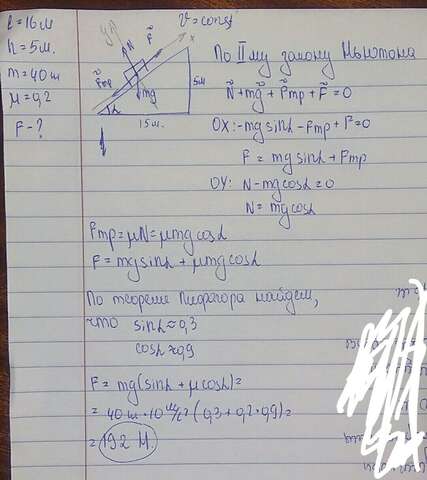 l = 16м
h = 5м.
m = 40 кг
μ = 0,2
F - ?
v = const
y
N
F
x
Fтр
mg
α
5м
15м.
По II му закону Ньютона
N + mg + Fтр + F = 0
OX: -mg sinα - Fтр + F = 0
F = mg sinα + Fтр
OY: N - mg cosα = 0
N = mg cosα
Fтр = μN = μmg cosα
F = mg sinα + μmg cosα
По теореме Пифагора найдем,
что sinα ≈ 0,3
cosα ≈ 0,9
F = mg(sinα + μ cosα) =
= 40 кг · 10 м/с² (0,3 + 0,2 · 0,9) =
= 192 Н.